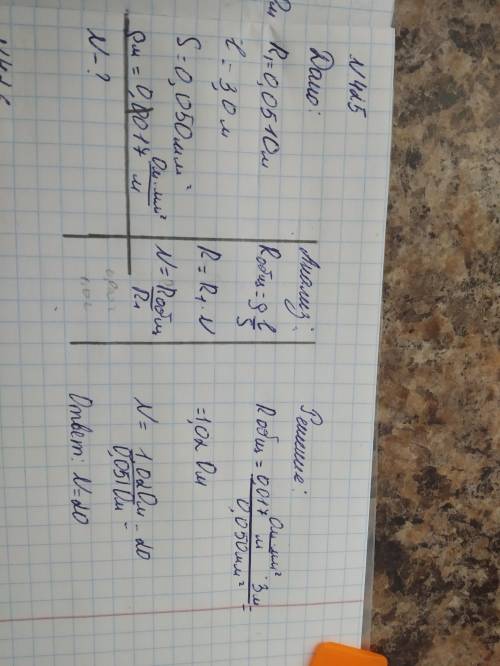 N 425
Дано:
R₁=0,051Ом
ℓ=3,0 м
S=0,050мм²
ρм=0,0017 Ом·мм²/м
N-?
Анализ:
Rобщ=ρ ℓ/S
R=R₁·N
N=Rобщ/R₁
Решение:
Rобщ= 0017 Ом·мм²/м · 3м / 0,050мм² =
=1,02 Ом
N= 1,02Ом/0,051Ом = 20
Ответ: N=20